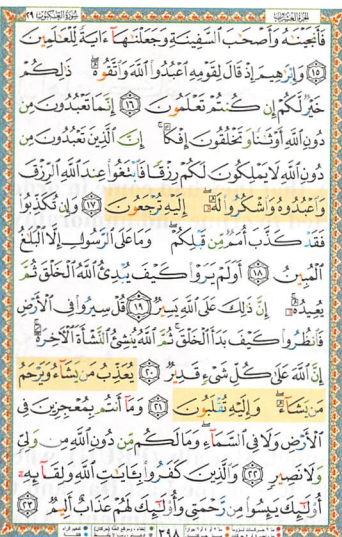 الجزء العشرون سورة العنكبوت ٢٩
فَأَنجَيْنَٰهُ وَأَصْحَٰبَ ٱلسَّفِينَةِ وَجَعَلْنَٰهَآ ءَايَةً لِّلْعَٰلَمِينَ
﴿١٥﴾ وَإِبْرَٰهِيمَ إِذْ قَالَ لِقَوْمِهِ ٱعْبُدُوا۟ ٱللَّهَ وَٱتَّقُوهُ ۖ ذَٰلِكُمْ
خَيْرٌ لَّكُمْ إِن كُنتُمْ تَعْلَمُونَ ﴿١٦﴾ إِنَّمَا تَعْبُدُونَ مِن
دُونِ ٱللَّهِ أَوْثَٰنًا وَتَخْلُقُونَ إِفْكًا ۚ إِنَّ ٱلَّذِينَ تَعْبُدُونَ مِن
دُونِ ٱللَّهِ لَا يَمْلِكُونَ لَكُمْ رِزْقًا فَٱبْتَغُوا۟ عِندَ ٱللَّهِ ٱلرِّزْقَ
وَٱعْبُدُوهُ وَٱشْكُرُوا۟ لَهُۥٓ ۖ إِلَيْهِ تُرْجَعُونَ ﴿١٧﴾ وَإِن تُكَذِّبُوا۟
فَقَدْ كَذَّبَ أُمَمٌ مِّن قَبْلِكُمْ ۖ وَمَا عَلَى ٱلرَّسُولِ إِلَّا ٱلْبَلَٰغُ
ٱلْمُبِينُ ﴿١٨﴾ أَوَلَمْ يَرَوْا۟ كَيْفَ يُبْدِئُ ٱللَّهُ ٱلْخَلْقَ ثُمَّ
يُعِيدُهُۥٓ ۚ إِنَّ ذَٰلِكَ عَلَى ٱللَّهِ يَسِيرٌ ﴿١٩﴾ قُلْ سِيرُوا۟ فِى ٱلْأَرْضِ
فَٱنظُرُوا۟ كَيْفَ بَدَأَ ٱلْخَلْقَ ۚ ثُمَّ ٱللَّهُ يُنشِئُ ٱلنَّشْأَةَ ٱلْءَاخِرَةَ ۚ
إِنَّ ٱللَّهَ عَلَىٰ كُلِّ شَىْءٍ قَدِيرٌ ﴿٢٠﴾ يُعَذِّبُ مَن يَشَآءُ وَيَرْحَمُ
مَن يَشَآءُ ۖ وَإِلَيْهِ تُقْلَبُونَ ﴿٢١﴾ وَمَآ أَنتُم بِمُعْجِزِينَ فِى
ٱلْأَرْضِ وَلَا فِى ٱلسَّمَآءِ ۖ وَمَا لَكُم مِّن دُونِ ٱللَّهِ مِن وَلِىٍّ
وَلَا نَصِيرٍ ﴿٢٢﴾ وَٱلَّذِينَ كَفَرُوا۟ بِـَٔايَٰتِ ٱللَّهِ وَلِقَآئِهِۦٓ
أُو۟لَٰٓئِكَ يَئِسُوا۟ مِن رَّحْمَتِى وَأُو۟لَٰٓئِكَ لَهُمْ عَذَابٌ أَلِيمٌ ﴿٢٣﴾
٣٩٨